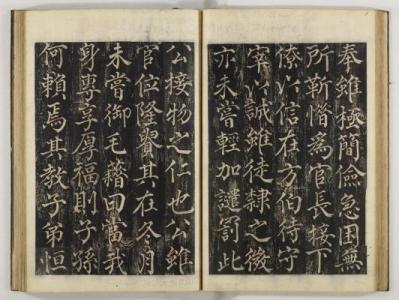 奉雖極簡儉急困無
所靳惜為官長接下
僚以信在方伯待守
宰以誠雖徒隸之微
亦未嘗輕加譴罰此
公接物之仁也公雖
官位隆貴其在久自
未嘗御毛籍曰當我
身專享厚福則子孫
何賴焉其教子弟恒